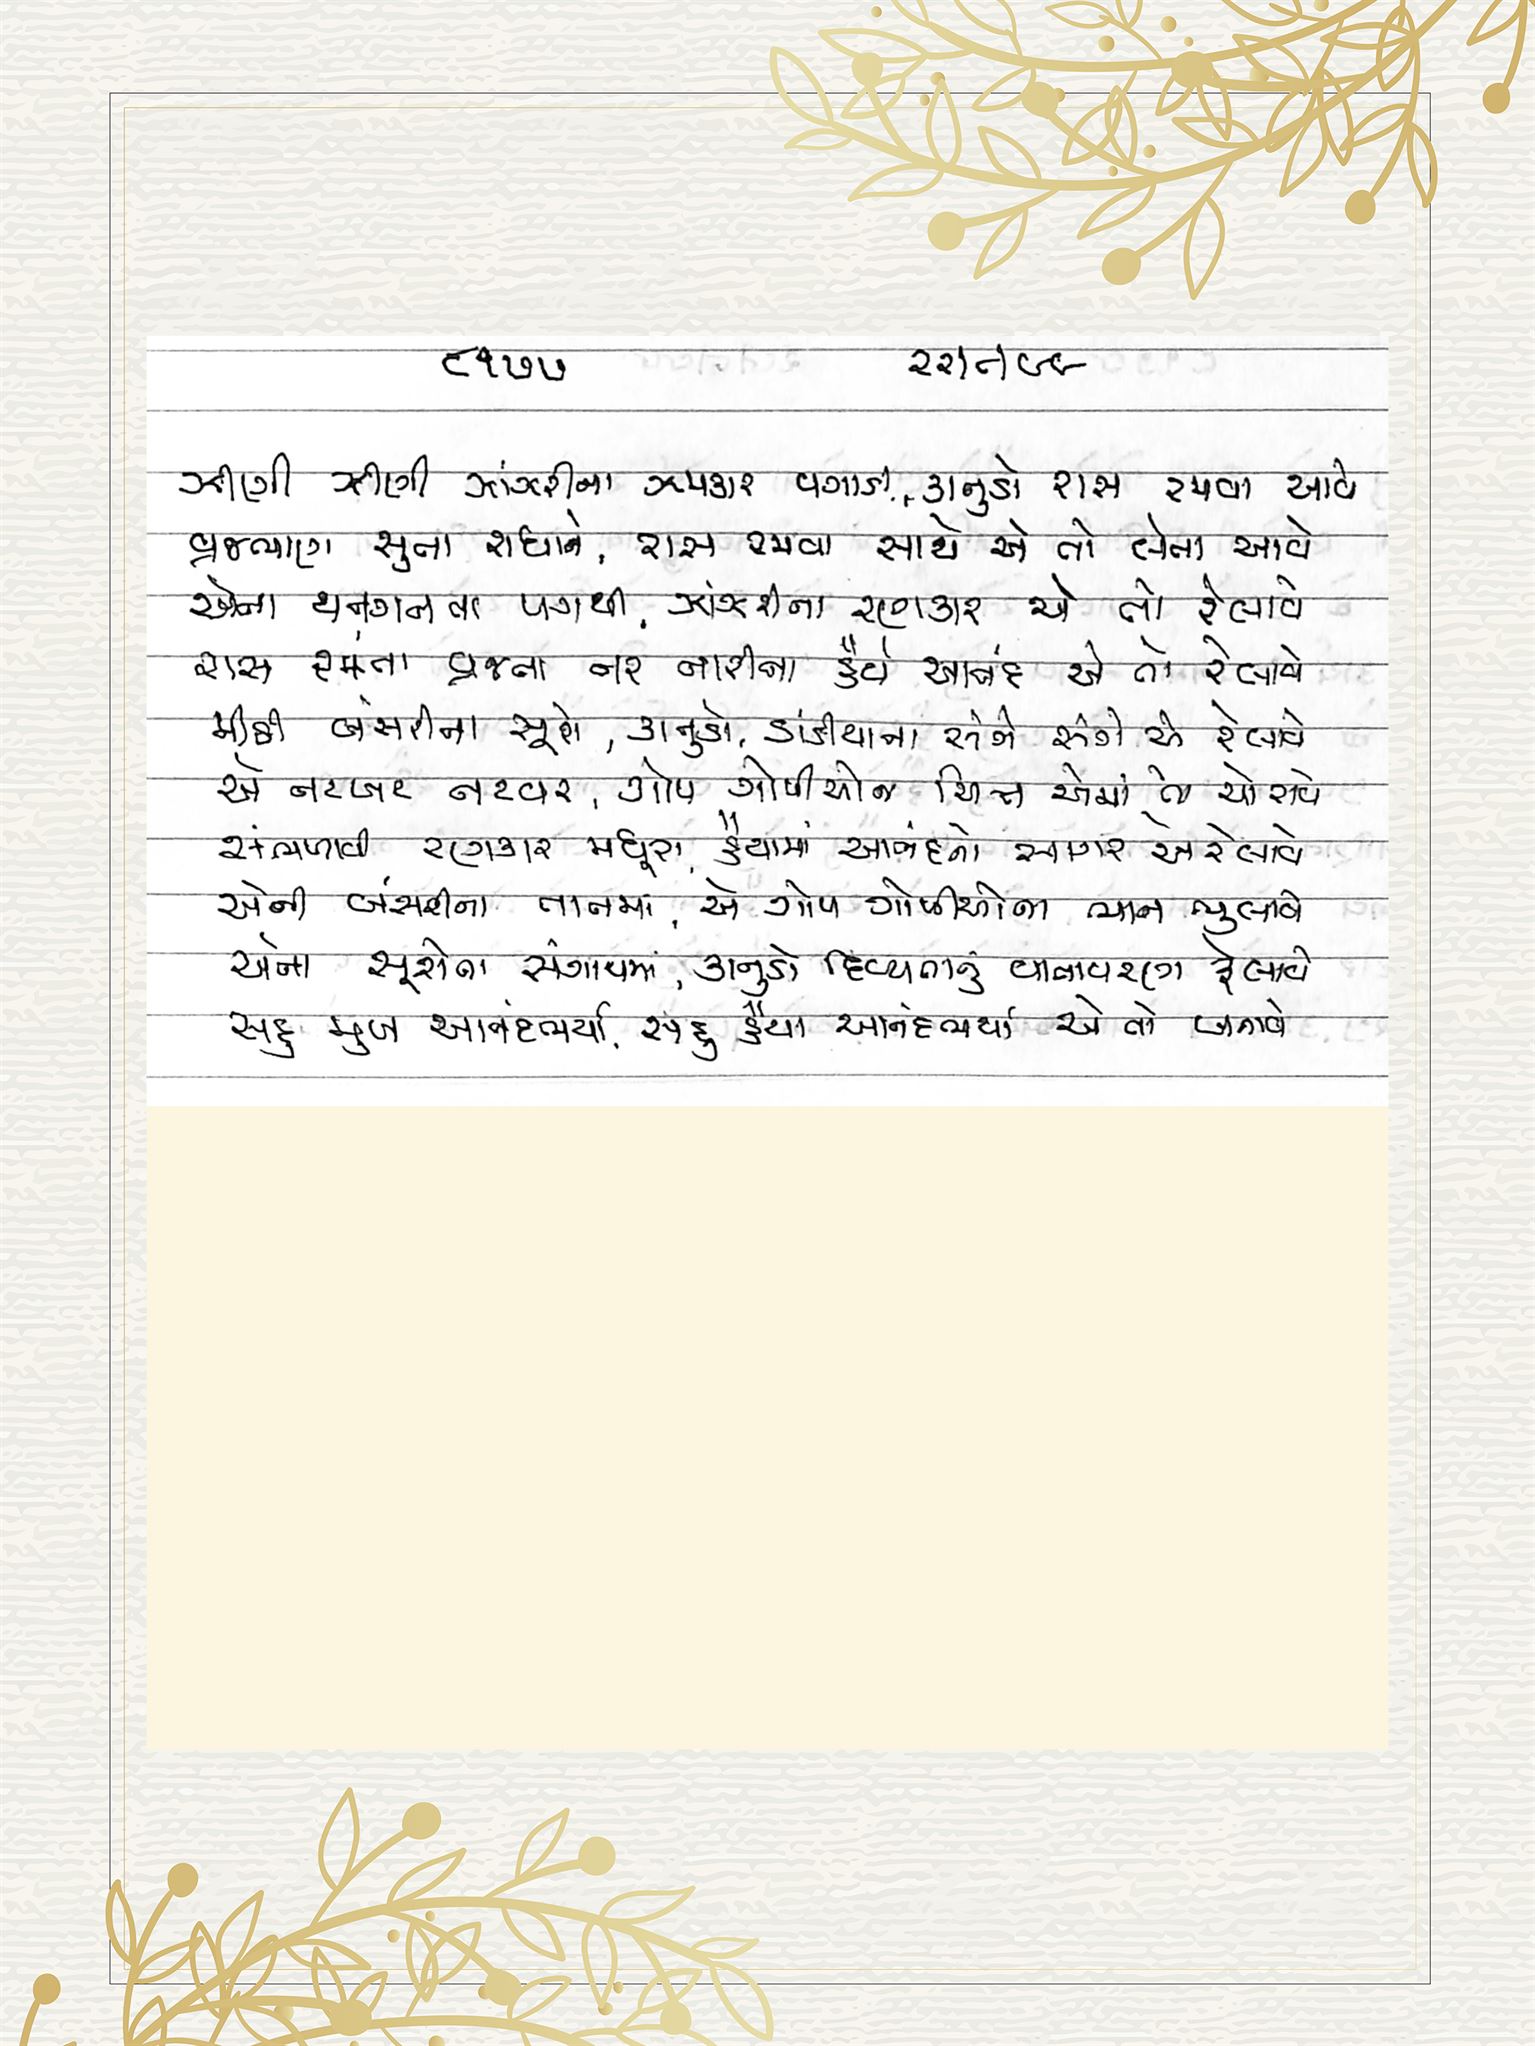 ૮૧૭૭ ૨૨।ન।૯૯
ઝીણી ઝીણી ઝાંઝરીના ઝમકાર વગાડી, કાનુડો રાસ રમવા આવે
વ્રજભાણ સુતા રાધાને, રાસ રમવા સાથે એ તો લેતા આવે
એના થનગનતા પગથી, ઝાંઝરીના રણકાર એ તો રેલાવે
રાસ રમંતા વ્રજના નર નારીના હૈયે આનંદ એ તો રેલાવે
મીઠી બંસરીના સૂરો, કાનુડો, ડાંડીયાના સંગે સંગે એ રેલાવે
એ નટખટ નટવર, ગોપ ગોપીઓના ચિત્ત એમાં તો ચોરાવે
સંભળાવી રણકાર મધૂરા, હૈયામાં આનંદનો સાગર એ રેલાવે
એની બંસરીના તાનમાં, એ ગોપ ગોપીઓના ભાન ભુલાવે
એના સૂરોના સંગાથમાં, કાનુડો દિવ્યતાનું વાતાવરણ ફેલાવે
સહુ મુખ આનંદભર્યા, સહુ હૈયા આનંદભર્યા એ તો બનાવે